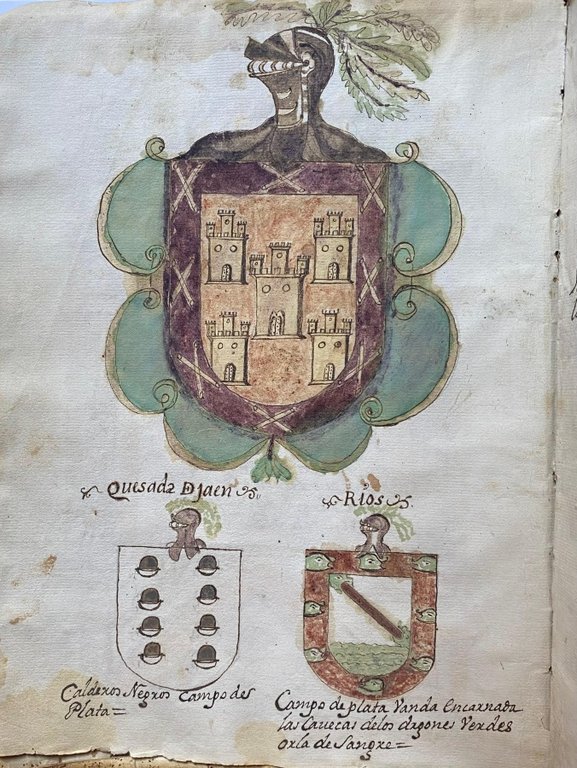 Quesada DJaen
Ríos
Calderos Negros Campo des
Plata=
Campo de plata Vanda Encarnada
las Cauecas delos dragones Verdes
orla de Sangre=